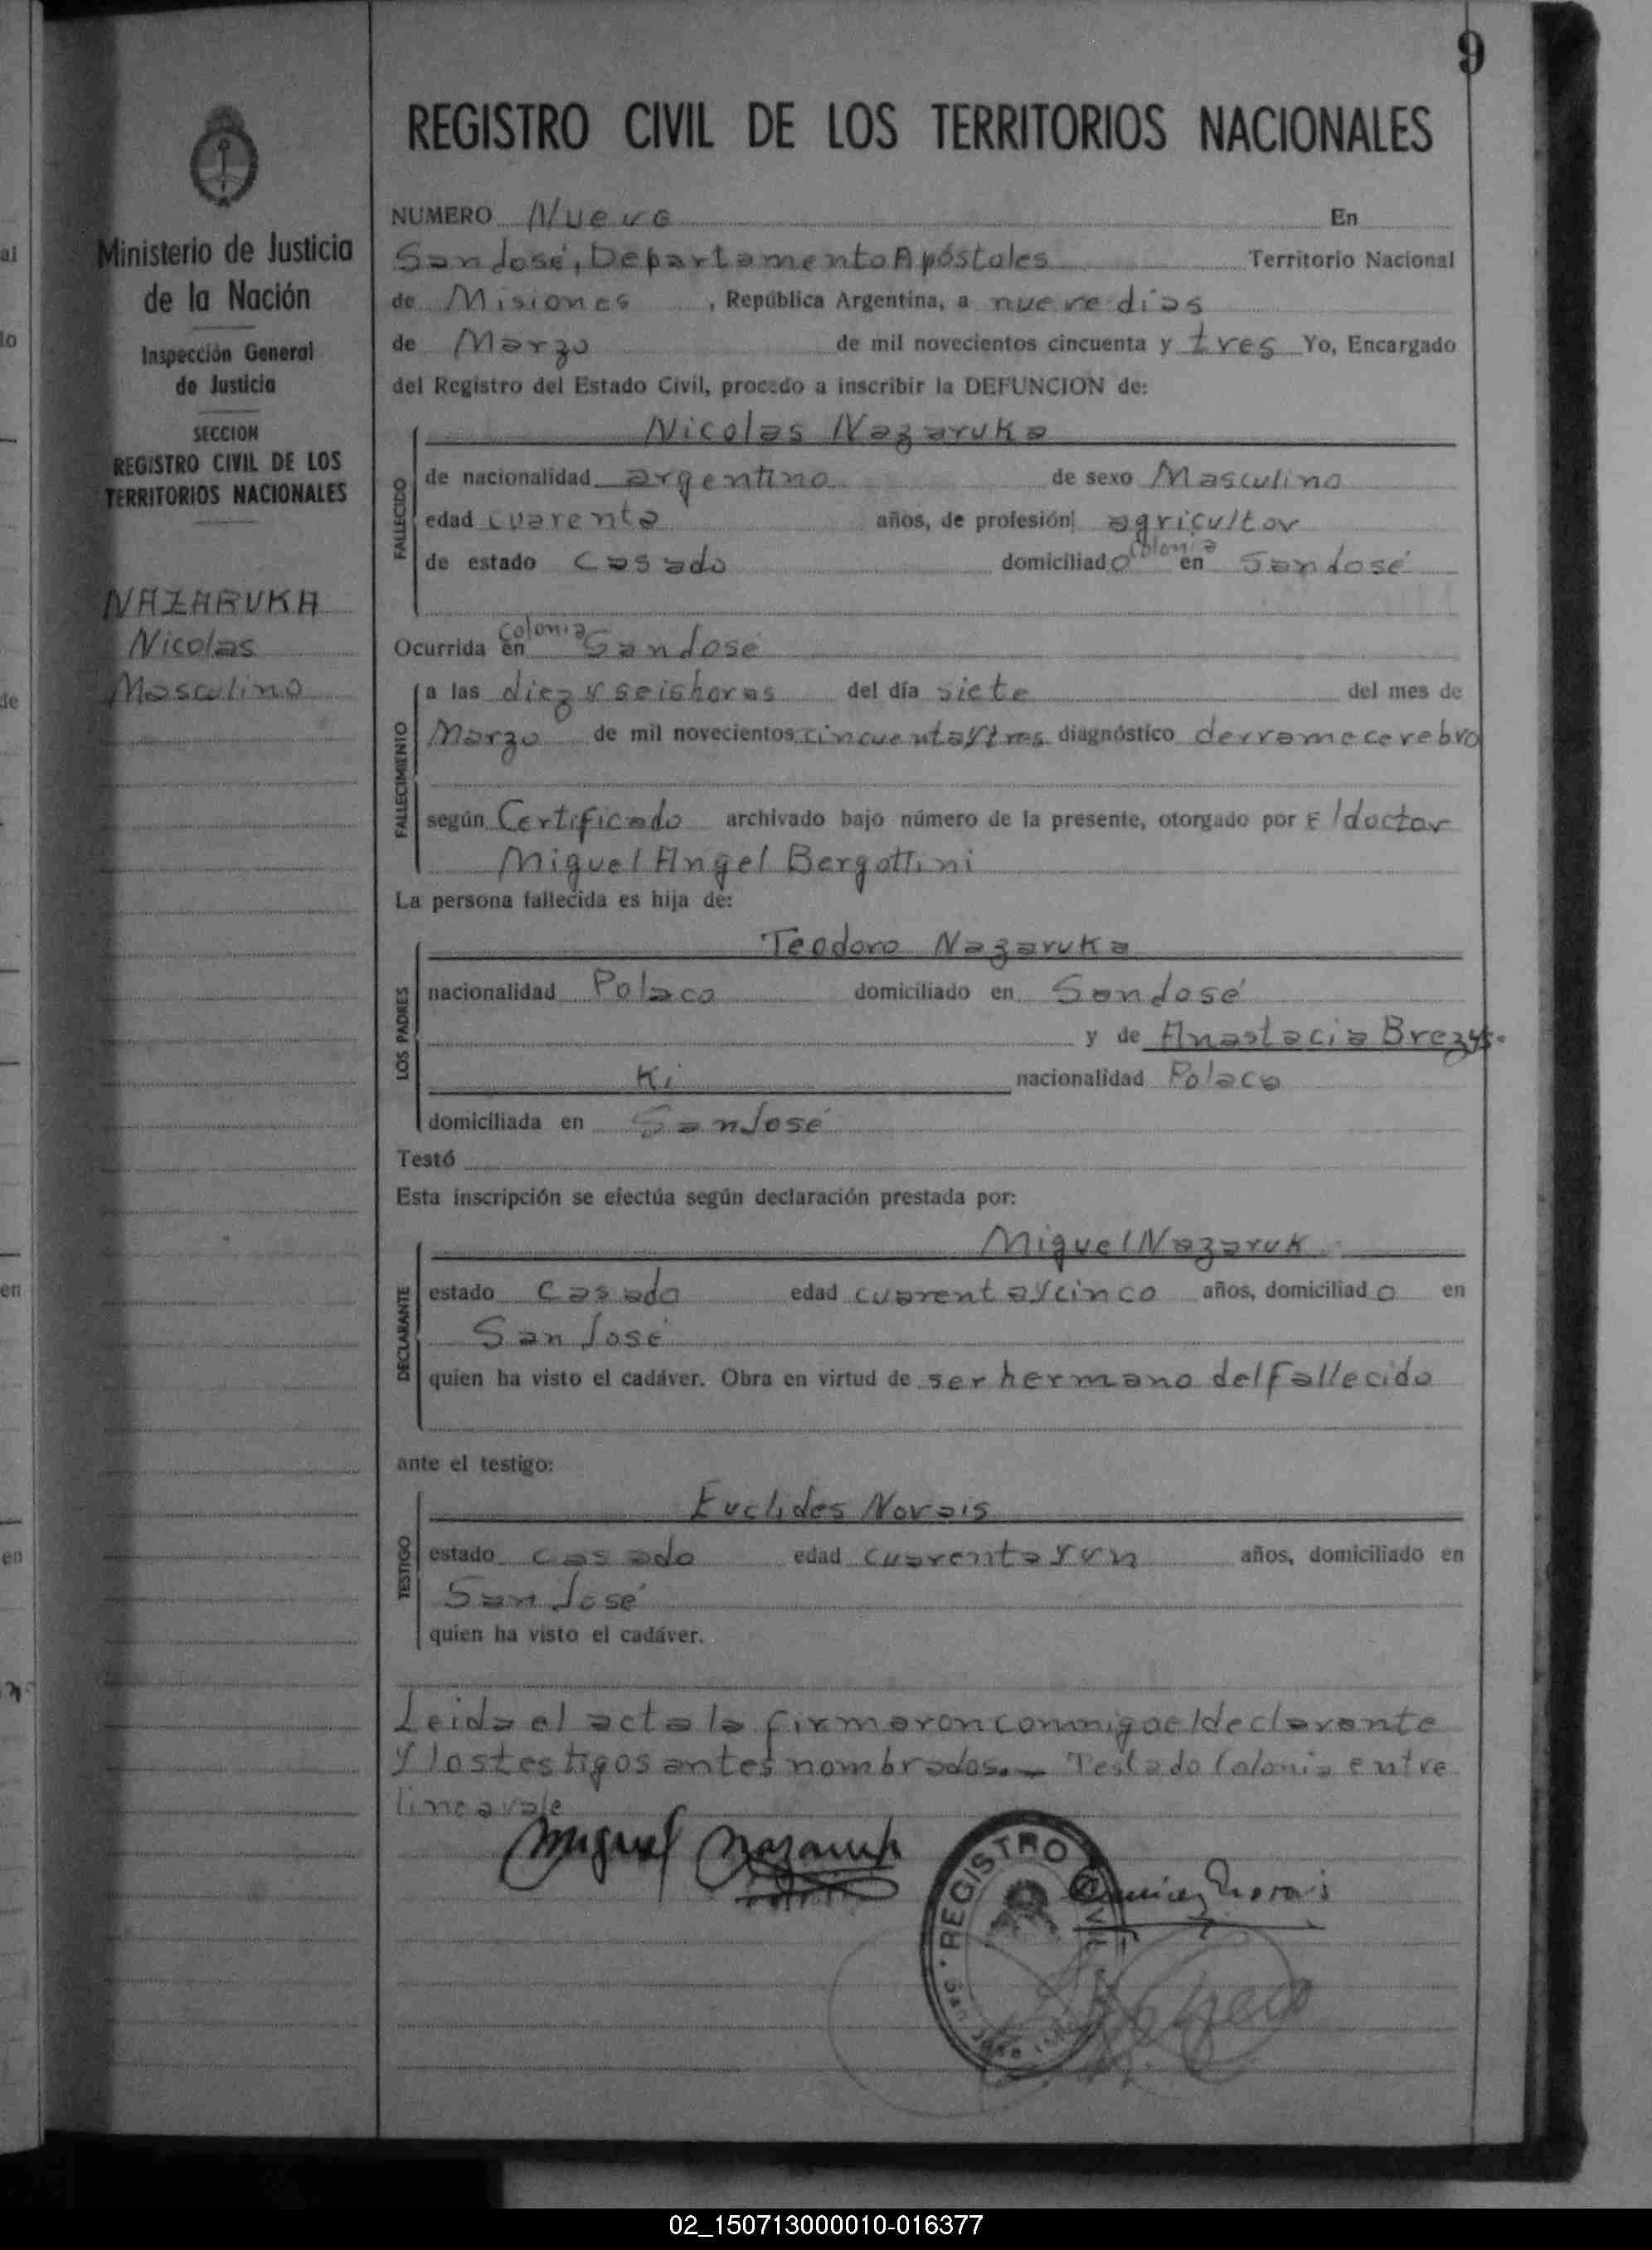 9
REGISTRO CIVIL DE LOS TERRITORIOS NACIONALES
Ministerio de Justicia
de la Nación
Inspección General
de Justicia
SECCION
REGISTRO CIVIL DE LOS
TERRITORIOS NACIONALES
NAZARUKA
Nicolas
Masculino
NUMERO Nueve En
San José, Departamento Apóstoles Territorio Nacional
de Misiones , República Argentina, a nueve días
de Marzo de mil novecientos cincuenta y tres Yo, Encargado
del Registro del Estado Civil, procedo a inscribir la DEFUNCION de:
Nicolas Nazaruka
FALLECIDO
de nacionalidad argentino de sexo Masculino
edad cuarenta años, de profesión agricultor
de estado casado domiciliado en Colonia San José
Ocurrida en Colonia San José
FALLECIMIENTO
a las diez y seis horas del día siete del mes de
Marzo de mil novecientos cincuenta y tres diagnóstico derrame cerebro
según Certificado archivado bajo número de la presente, otorgado por El doctor
Miguel Angel Bergottini
La persona fallecida es hija de:
Teodoro Nazaruka
LOS PADRES
nacionalidad Polaco domiciliado en San José
y de Anastacia Brezys-
Ki nacionalidad Polaca
domiciliada en San José
Testó
Esta inscripción se efectúa según declaración prestada por:
Miguel Nazaruk
DECLARANTE
estado casado edad cuarenta y cinco años, domiciliado en
San José
quien ha visto el cadáver. Obra en virtud de ser hermano del fallecido
ante el testigo:
Euclides Novais
TESTIGO
estado casado edad cuarenta y un años, domiciliado en
San José
quien ha visto el cadáver.
Leida el acta la firmaron conmigo el declarante
y los testigos antes nombrados.- Testado Colonia entre
linea vale
Miguel Nazaruk
REGISTRO CIVIL
02_150713000010-016377